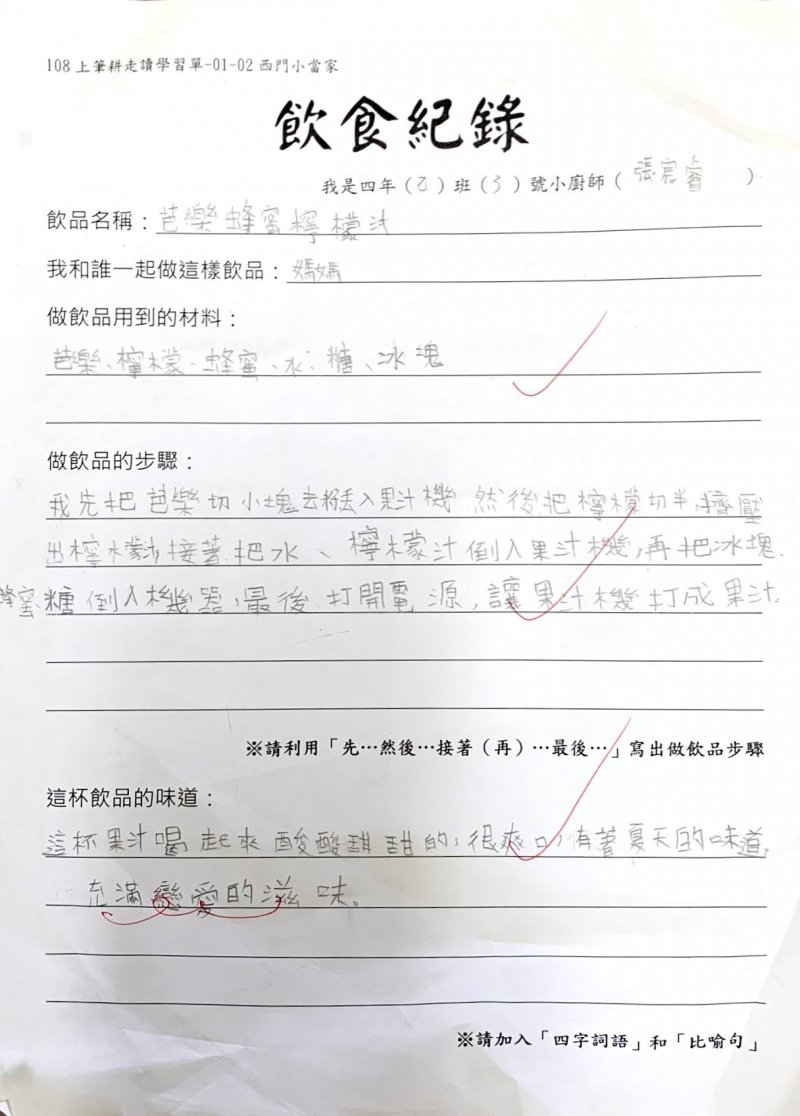 108上筆耕走讀學習單-01-02西門小當家
飲食紀錄
我是四年(乙)班(3)號小廚師(張宸睿)
飲品名稱：芭樂蜂蜜檸檬汁
我和誰一起做這樣飲品：媽媽
做飲品用到的材料：
芭樂、檸檬、蜂蜜、水、糖、冰塊
做飲品的步驟：
我先把芭樂切小塊去籽丟入果汁機 然後把檸檬切半,擠壓
出檸檬汁,接著把水、檸檬汁倒入果汁機,再把冰塊、
蜂蜜糖倒入機器,最後打開電源,讓果汁機打成果汁.
※請利用「先…然後…接著(再)…最後…」寫出做飲品步驟
這杯飲品的味道：
這杯果汁喝起來酸酸甜甜的,很爽口,有著夏天的味道,
充滿戀愛的滋味。
※請加入「四字詞語」和「比喻句」